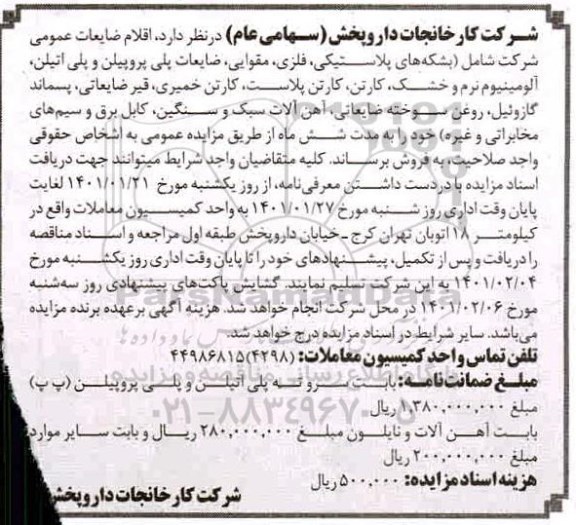 شرکت کارخانجات داروپخش (سهامی عام) درنظر دارد، اقلام ضایعات عمومی
شرکت شامل (بشکه‌های پلاستیکی، فلزی، مقوایی، ضایعات پلی پروپیلن و پلی اتیلن،
آلومینیوم نرم و خشک، کارتن، کارتن پلاست، کارتن خمیری، قیر ضایعاتی، پسماند
گازوئیل، روغن سوخته ضایعاتی، آهن آلات سبک و سنگین، کابل برق و سیم‌های
مخابراتی و غیره) خود را به مدت شش ماه از طریق مزایده عمومی به اشخاص حقوقی
واجد صلاحیت، به فروش برساند. کلیه متقاضیان واجد شرایط میتوانند جهت دریافت
اسناد مزایده با در دست داشتن معرفی‌نامه، از روز یکشنبه مورخ ۱۴۰۱/۰۱/۲۱ لغایت
پایان وقت اداری روز شنبه مورخ ۱۴۰۱/۰۱/۲۷ به واحد کمیسیون معاملات واقع در
کیلومتر ۱۸ اتوبان تهران کرج ـ خیابان داروپخش طبقه اول مراجعه و اسناد مناقصه
را دریافت و پس از تکمیل، پیشنهادهای خود را تا پایان وقت اداری روز یکشنبه مورخ
۱۴۰۱/۰۲/۰۴ به این شرکت تسلیم نمایند. گشایش پاکت‌های پیشنهادی روز سه‌شنبه
مورخ ۱۴۰۱/۰۲/۰۶ در محل شرکت انجام خواهد شد. هزینه آگهی برعهده برنده مزایده
می‌باشد. سایر شرایط در اسناد مزایده درج خواهد شد.
تلفن تماس واحد کمیسیون معاملات: (۴۲۹۸) ۴۴۹۸۶۸۱۵
مبلغ ضمانت‌نامه: بابت سرو ته پلی اتیلن و پلی پروپیلن (پ پ)
مبلغ ۱,۳۸۰,۰۰۰,۰۰۰ ریال
بابت آهن آلات و نایلون مبلغ ۲۸۰,۰۰۰,۰۰۰ ریال و بابت سایر موارد
مبلغ ۲۰۰,۰۰۰,۰۰۰ ریال
هزینه اسناد مزایده: ۵۰۰,۰۰۰ ریال
شرکت کارخانجات داروپخش
ParsNamadData
پایگاه اطلاع رسانی مناقصه و مزایده
۰۲۱-۸۸۳۴۹۶۷۰-۵